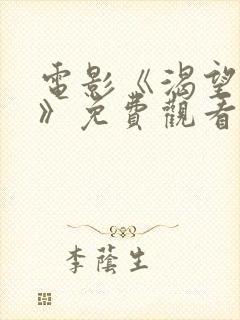 電影《渴望
》免費觀看
李蔭生